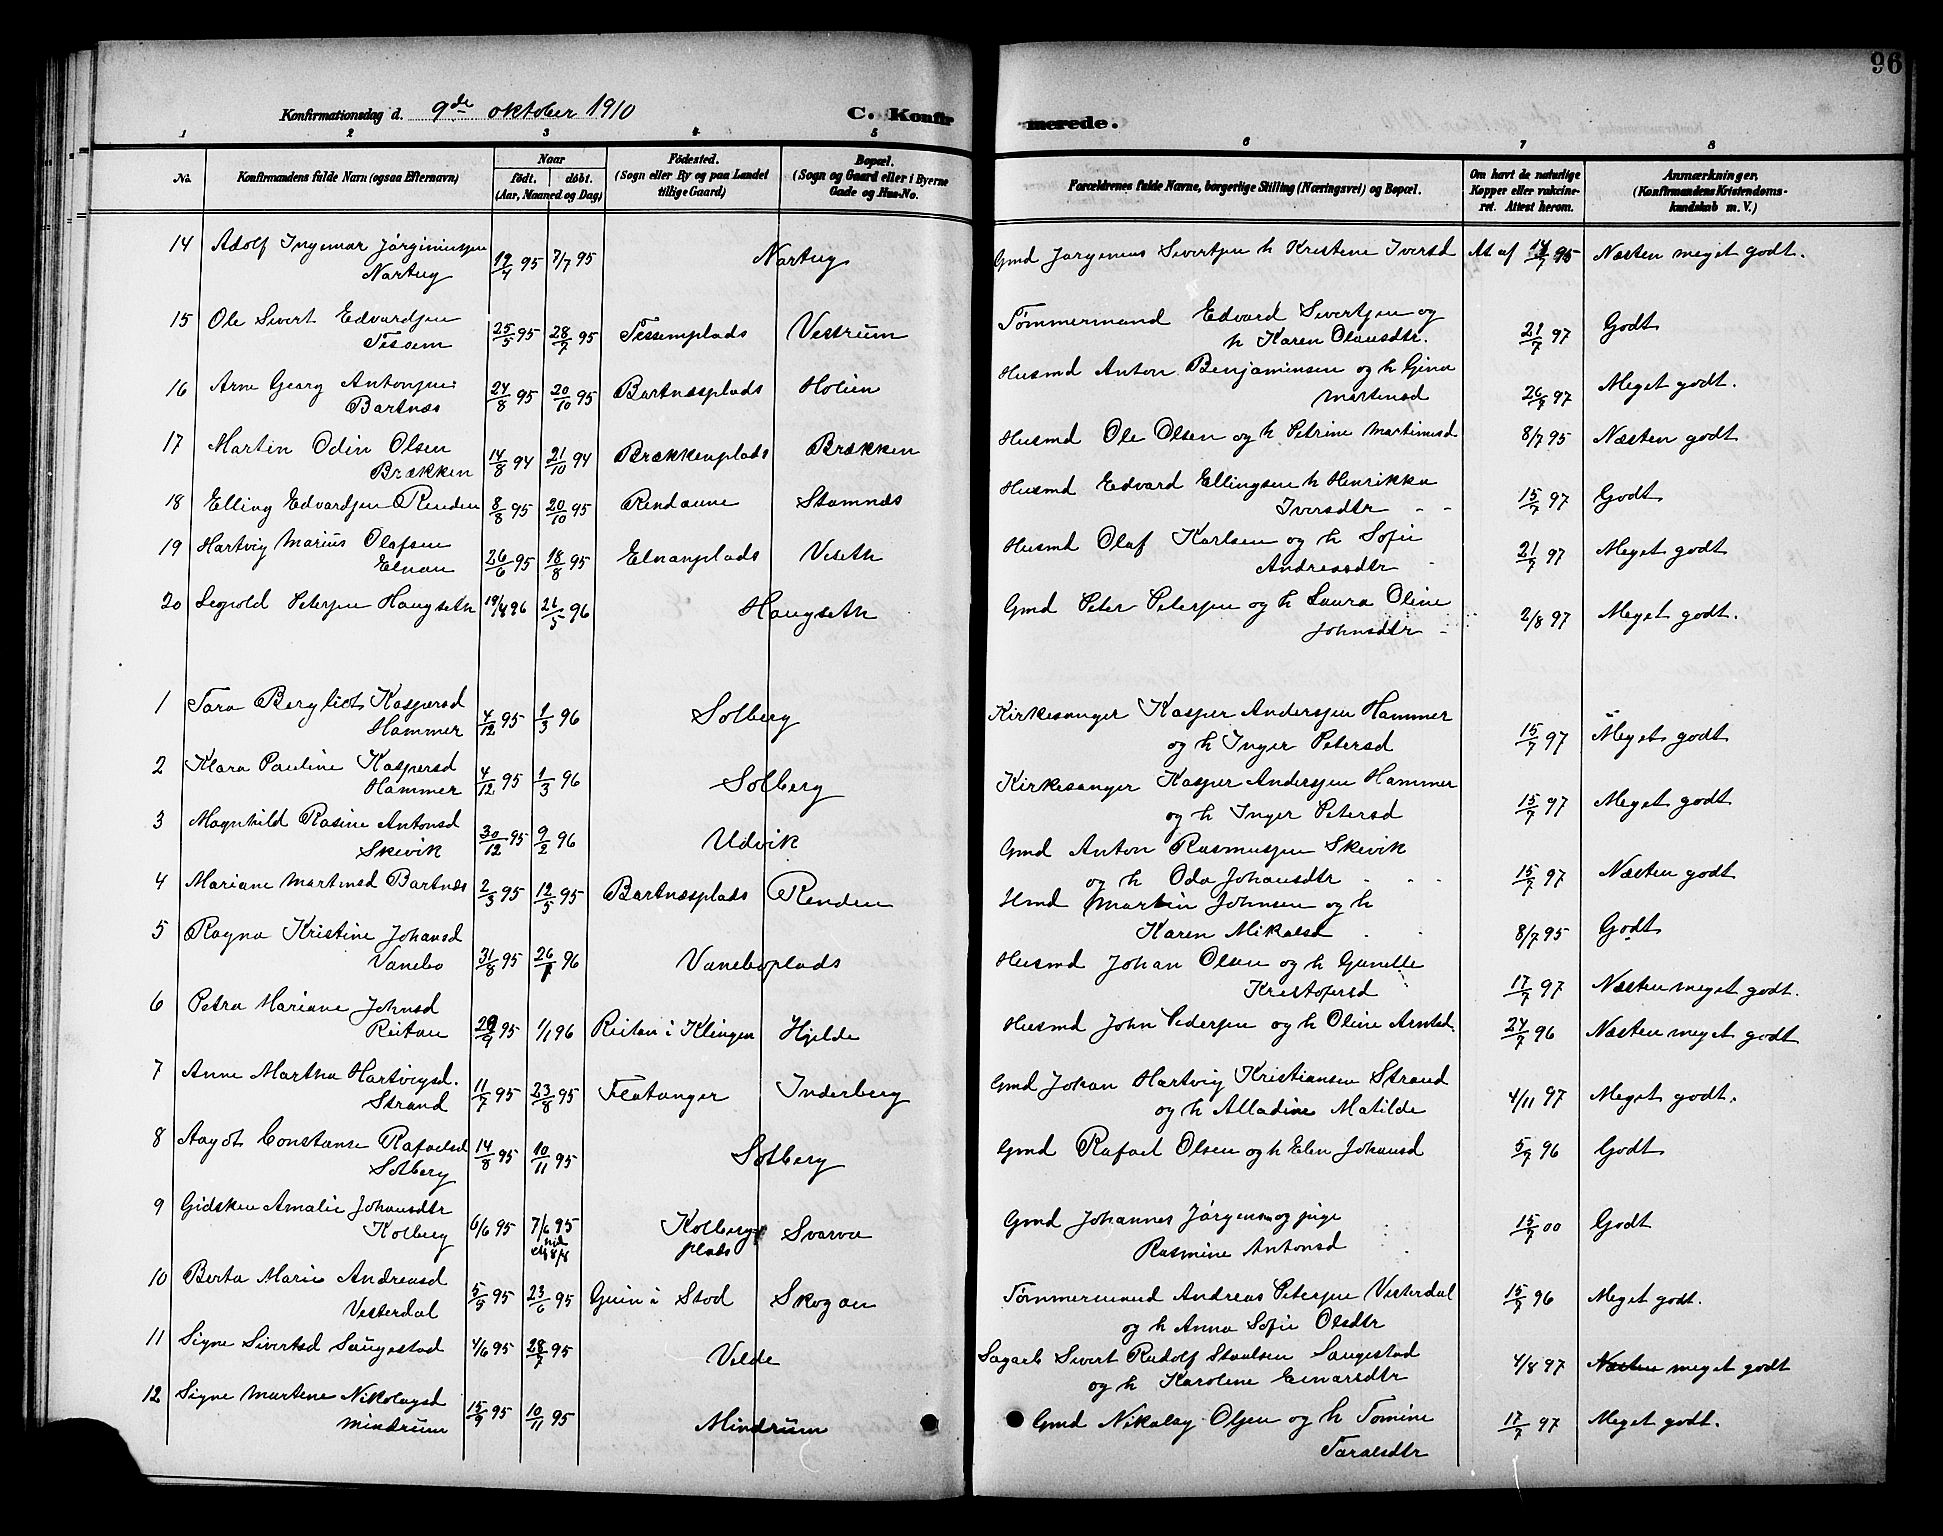 96
Konfirmationsdag d. 9de oktober 1910
C. Konfirmerede.
1 2 3 4 5 6 7 8
No. Konfirmandens fulde Navn (ogsaa Efternavn) Naar født. døbt. (Aar, Maaned og Dag) Fødested. (Sogn eller By og paa Landet tillige Gaard) Bopæl. (Sogn og Gaard eller i Byerne Gade og Hus-No. Forældrenes fulde Navne, borgerlige Stilling (Næringsvei) og Bopæl. Om havt de naturlige Kopper eller vakcineret. Attest herom. Anmærkninger, (Konfirmandens Kristendomskundskab m. V.)
14 Adolf Ingemar Jørginiussen Nartug 19/4 95 7/7 95 Nartug Gmd Jørgenius Sivertsen h Kristine Iversd At af 14/7 95 Næsten meget godt.
15 Ole Sivert Edvardsen Tessem 25/5 95 28/7 95 Tessemplads Vestrum Tømmermand Edvard Sivertsen og h Karen Olausdtr. 21/7 97 Godt
16 Arne Georg Antonsen Bartnæs 24/8 95 20/10 95 Bartnæsplads Holien Husmd Anton Benjaminsen og h Gina Martinsd 26/7 97 Meget godt.
17 Martin Odin Olsen Brækken 14/8 94 21/10 94 Brækkenplads Brækken Husmd Ole Olsen og h Petrine Martinusd 8/7 95 Næsten godt
18 Elling Edvardsen Renden 8/8 95 20/10 95 Rendaune Stamnæs Husmd Edvard Ellingsen h Henrikka Iversdtr 15/7 97 Godt
19 Hartvig Marius Olafsen Elnan 26/6 95 18/8 95 Elnanplads Veseth Husmd Olaf Karlsen og h Sofie Andreasdtr 21/7 97 Meget godt
20 Leopold Petersen Haugseth 19/4 96 26/5 96 Haugseth Gmd Peter Petersen og h Laura Oline Johnsdtr 2/8 97 Meget godt.
1 Tora Bergliot Kaspersd Hammer 4/12 95 1/3 96 Solberg Kirkesanger Kasper Andersen Hammer og h Inger Petersd 15/7 97 Meget godt
2 Klara Pauline Kaspersd Hammer 4/12 95 1/3 96 Solberg Kirkesanger Kasper Andersen Hammer og h Inger Petersd 15/7 97 Meget godt
3 Magnhild Rasine Antonsd Skevik 30/12 95 9/2 96 Udvik Gmd Anton Rasmussen Skevik og h Oda Johansdtr 15/7 97 Næsten godt
4 Mariane Martinsd Bartnæs 2/3 95 12/5 95 Bartnæsplads Renden Hmd Martin Johnsen og h Karen Mikalsd 8/7 95 Godt
5 Ragna Kristine Johansd Vanebo 31/8 95 26/1 96 Vaneboplads Husmd Johan Olsen og h Gunelle Kristofersd 17/7 97 Næsten meget godt.
6 Petra Mariane Johnsd Reitan 29/9 95 1/1 96 Reitan i Klingen Hjelde Husmd John Pedersen og h Oline Arntsd 24/7 96 Næsten meget godt
7 Anne Martha Hartvigsd. Strand 11/7 95 23/8 95 Flatanger Inderberg Gmd Johan Hartvig Kristiansen Strand og h Alladine Matilde 4/11 97 Meget godt.
8 Aagot Constanse Rafaelsd Solberg 14/8 95 10/11 95 Solberg Gmd Rafael Olsen og h Elen Johansd 5/7 96 Godt
9 Gidsken Amalie Johansdtr Kolberg 6/6 95 7/6 95 Kolberg plads Svarva Gmd Johannes Jørgensen og pige Rasmine Antonsd 15/7 00 Godt
10 Berta Marie Andreasd Vesterdal 5/5 95 23/6 95 Guin i Stod Skogan Tømmermand Andreas Petersen Vesterdal og h Anna Sofie Olsdtr 15/7 96 Meget godt.
11 Signe Sivertsd Saugestad 4/6 95 28/7 95 Velde Sagarb Sivert Rudolf Staalsen Saugestad og h Karoline Einarsdtr 4/8 97 Næsten meget godt
12 Signe Martene Nikolaysd Mindrum 15/9 95 10/11 95 Mindrum Gmd Nikolay Olsen og h Tomine Taraldsdtr 17/7 97 Meget godt.